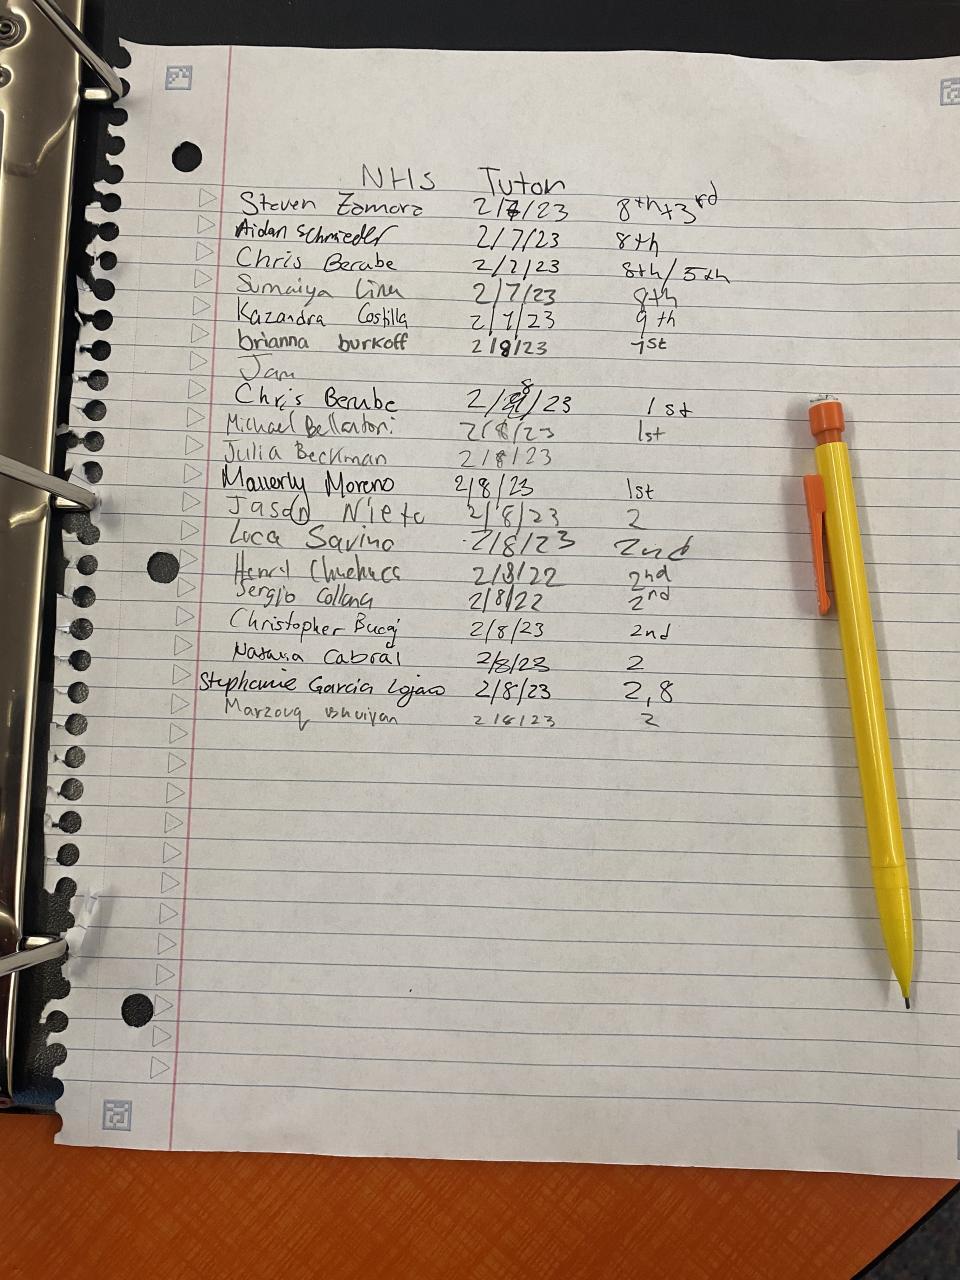 NHS Tutor
Steven Zamora 2/7/23 8th+3rd
Aidan Schmieder 2/7/23 8th
Chris Berube 2/7/23 8th/5th
Sumaiya 2/7/23 8th
Kazandra Costilla 2/7/23 9th
brianna burkoff 2/8/23 1st
Jam
Chris Berube 2/8/23 1st
Michael 2/8/23 1st
Julia Beckman 2/8/23
Mauerly Moreno 2/8/23 1st
Jason Nieto 2/8/23 2
Luca Savino 2/8/23 2nd
Henry 2/8/22 2nd
Sergio Collana 2/8/22 2nd
Christopher 2/8/23 2nd
Natalia Cabral 2/8/23 2
Stephanie Garcia Lojano 2/8/23 2,8
Marzouq Bhuiyan 2/8/23 2